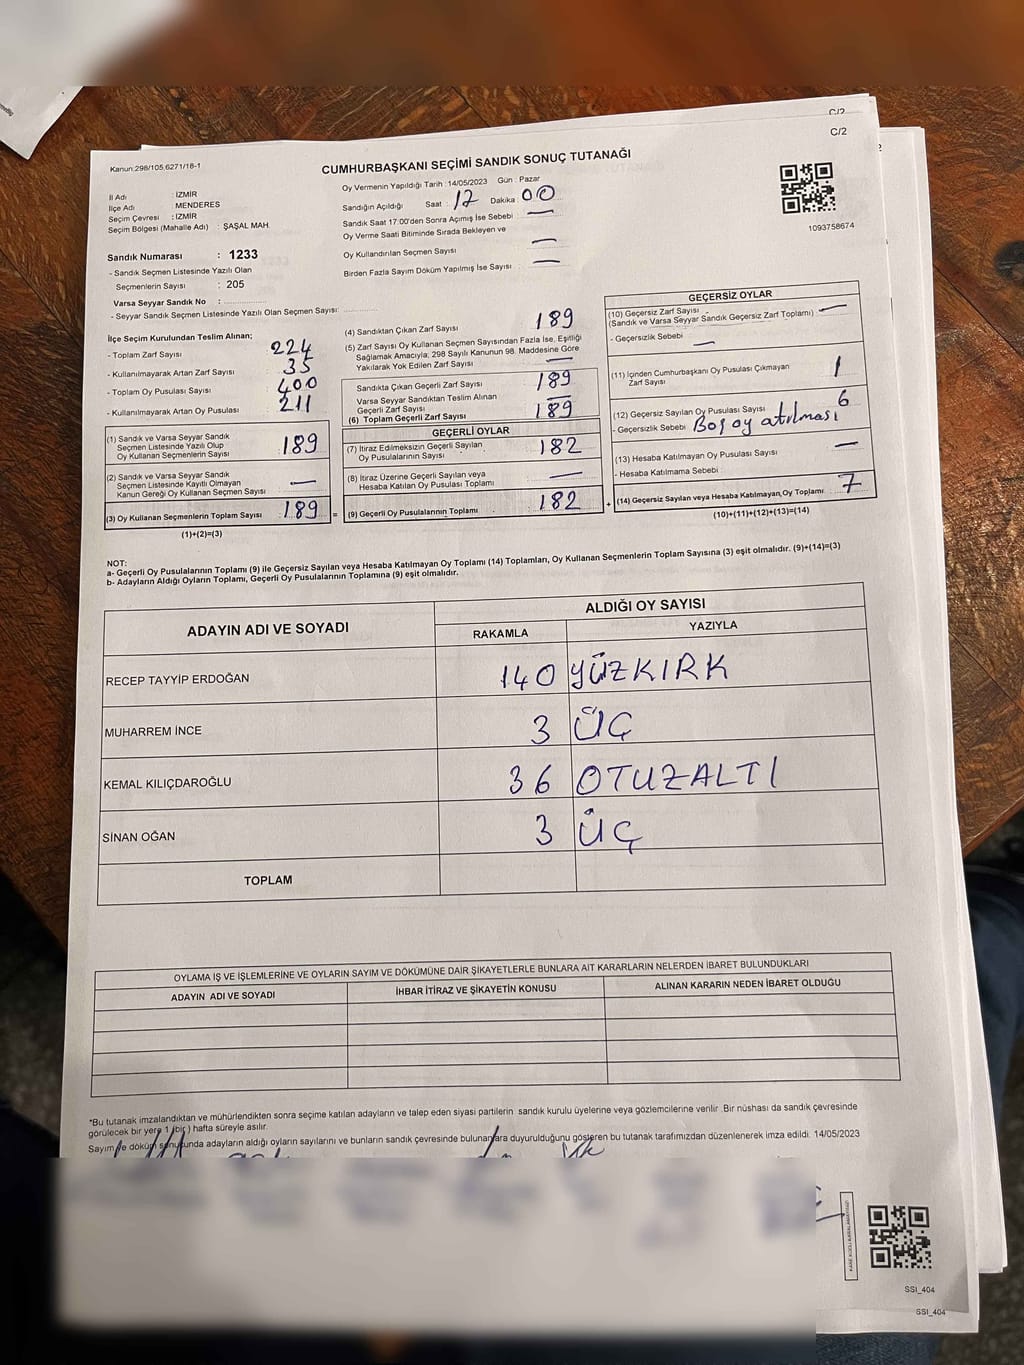 C/2
C/2
Kanun:298/105,6271/18-1
CUMHURBAŞKANI SEÇİMİ SANDIK SONUÇ TUTANAĞI
İl Adı : İZMİR
İlçe Adı : MENDERES
Seçim Çevresi : İZMİR
Seçim Bölgesi (Mahalle Adı) : ŞAŞAL MAH.
Oy Vermenin Yapıldığı Tarih : 14/05/2023 Gün : Pazar
Sandığın Açıldığı Saat : 17 Dakika : 00
Sandık Saat 17:00'den Sonra Açımış İse Sebebi : —
Oy Verme Saati Bitiminde Sırada Bekleyen ve
Oy Kullandırılan Seçmen Sayısı —
Birden Fazla Sayım Döküm Yapılmış İse Sayısı : —
1093758674
Sandık Numarası : 1233
- Sandık Seçmen Listesinde Yazılı Olan
Seçmenlerin Sayısı : 205
Varsa Seyyar Sandık No :
- Seyyar Sandık Seçmen Listesinde Yazılı Olan Seçmen Sayısı:
İlçe Seçim Kurulundan Teslim Alınan;
- Toplam Zarf Sayısı 224
- Kullanılmayarak Artan Zarf Sayısı 35
- Toplam Oy Pusulası Sayısı 400
- Kullanılmayarak Artan Oy Pusulası 211
(1) Sandık ve Varsa Seyyar Sandık
Seçmen Listesinde Yazılı Olup
Oy Kullanan Seçmenlerin Sayısı 189
(2) Sandık ve Varsa Seyyar Sandık
Seçmen Listesinde Kayıtlı Olmayan
Kanun Gereği Oy Kullanan Seçmen Sayısı —
(3) Oy Kullanan Seçmenlerin Toplam Sayısı 189
(1)+(2)=(3)
=
(4) Sandıktan Çıkan Zarf Sayısı 189
(5) Zarf Sayısı Oy Kullanan Seçmen Sayısından Fazla İse, Eşitliği
Sağlamak Amacıyla; 298 Sayılı Kanunun 98. Maddesine Göre
Yakılarak Yok Edilen Zarf Sayısı —
Sandıkta Çıkan Geçerli Zarf Sayısı 189
Varsa Seyyar Sandıktan Teslim Alınan
Geçerli Zarf Sayısı —
(6) Toplam Geçerli Zarf Sayısı 189
GEÇERLİ OYLAR
(7) İtiraz Edilmeksizin Geçerli Sayılan
Oy Pusulalarının Sayısı 182
(8) İtiraz Üzerine Geçerli Sayılan veya
Hesaba Katılan Oy Pusulası Toplamı —
(9) Geçerli Oy Pusulalarının Toplamı 182
+
GEÇERSİZ OYLAR
(10) Geçersiz Zarf Sayısı
(Sandık ve Varsa Seyyar Sandık Geçersiz Zarf Toplamı) —
- Geçersizlik Sebebi : —
(11) İçinden Cumhurbaşkanı Oy Pusulası Çıkmayan
Zarf Sayısı 1
(12) Geçersiz Sayılan Oy Pusulası Sayısı 6
- Geçersizlik Sebebi : Boş oy atılması
(13) Hesaba Katılmayan Oy Pusulası Sayısı —
- Hesaba Katılmama Sebebi :
(14) Geçersiz Sayılan veya Hesaba Katılmayan Oy Toplamı 7
(10)+(11)+(12)+(13)=(14)
NOT:
a- Geçerli Oy Pusulalarının Toplamı (9) ile Geçersiz Sayılan veya Hesaba Katılmayan Oy Toplamı (14) Toplamları, Oy Kullanan Seçmenlerin Toplam Sayısına (3) eşit olmalıdır. (9)+(14)=(3)
b- Adayların Aldığı Oyların Toplamı, Geçerli Oy Pusulalarının Toplamına (9) eşit olmalıdır.
ADAYIN ADI VE SOYADI
ALDIĞI OY SAYISI
RAKAMLA YAZIYLA
RECEP TAYYİP ERDOĞAN 140 YÜZKIRK
MUHARREM İNCE 3 ÜÇ
KEMAL KILIÇDAROĞLU 36 OTUZALTI
SİNAN OĞAN 3 ÜÇ
TOPLAM
OYLAMA İŞ VE İŞLEMLERİNE VE OYLARIN SAYIM VE DÖKÜMÜNE DAİR ŞİKAYETLERLE BUNLARA AİT KARARLARIN NELERDEN İBARET BULUNDUKLARI
ADAYIN ADI VE SOYADI İHBAR İTİRAZ VE ŞİKAYETİN KONUSU ALINAN KARARIN NEDEN İBARET OLDUĞU
*Bu tutanak imzalandıktan ve mühürlendikten sonra seçime katılan adayların ve talep eden siyasi partilerin sandık kurulu üyelerine veya gözlemcilerine verilir. Bir nüshası da sandık çevresinde
görülecek bir yere 1 (bir) hafta süreyle asılır.
Sayım ve döküm sonucunda adayların aldığı oyların sayılarını ve bunların sandık çevresinde bulunanlara duyurulduğunu gösteren bu tutanak tarafımızdan düzenlenerek imza edildi. 14/05/2023
SSI_404
SSI_404